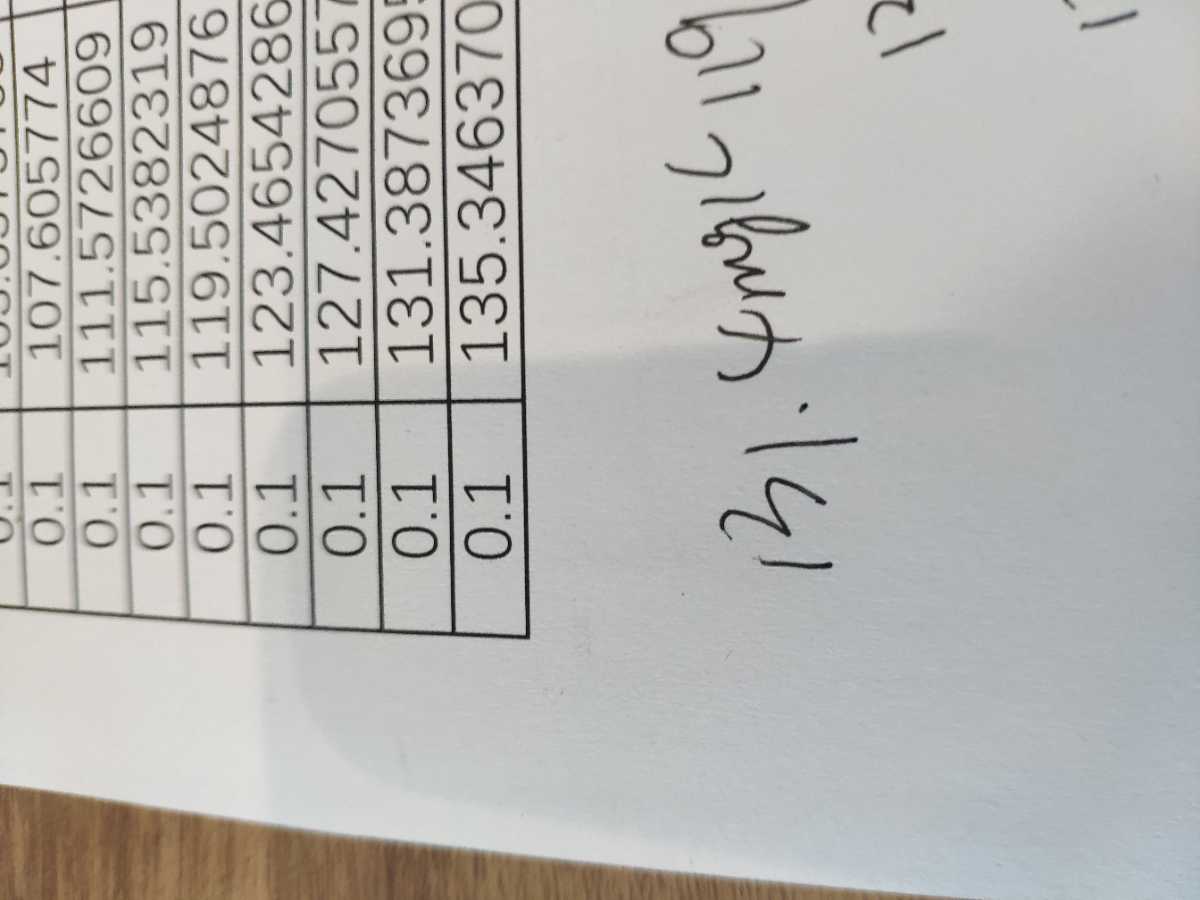 0.1
0.1 107.605774
0.1 111.5726609
0.1 115.5382319
0.1 119.5024876
0.1 123.4654286
0.1 127.4270557
0.1 131.387369
0.1 135.346370